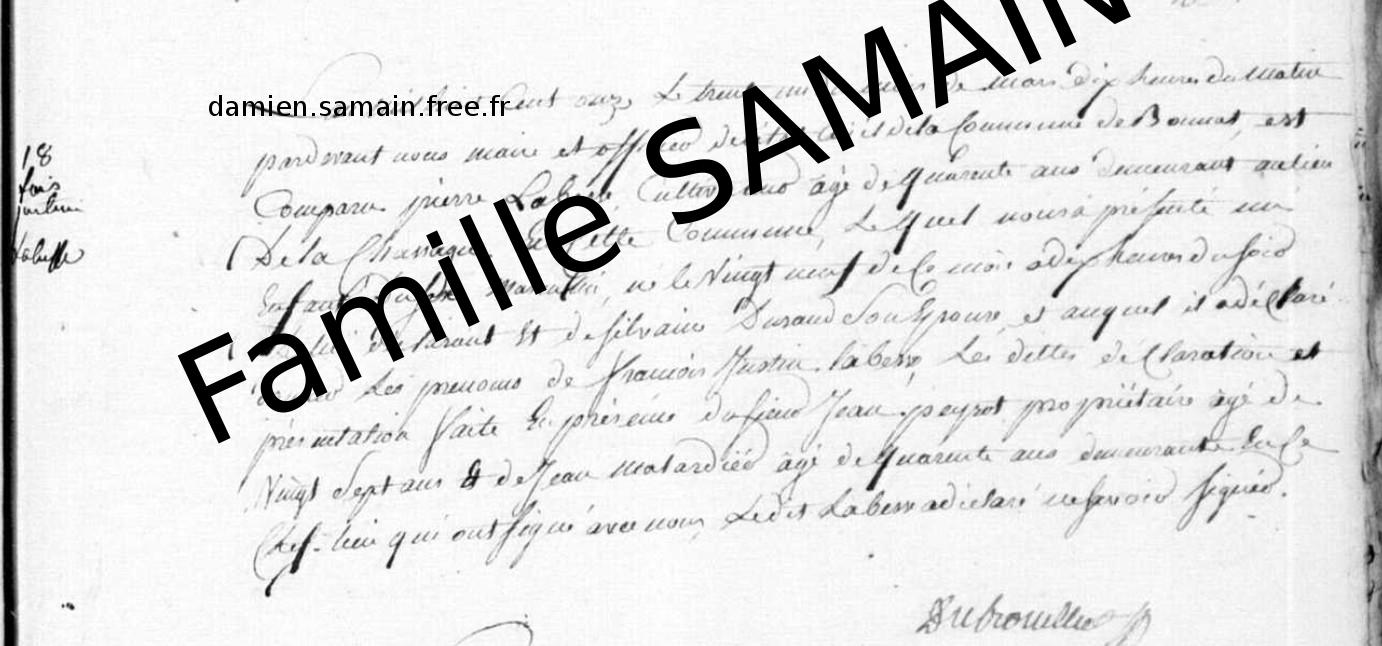 damien.samain.free.fr
Famille SAMAIN
cent onze Le trente un mois de Mars dix heures du Matin
18
pardevant nous maire et officier de la Commune de Bonnat, est
Comparu pierre Labesse, Cultivateur âgé de quarente ans demeurant au lieu
De la Chassagne, Cette Commune, Lequel nous a présenté un
Labesse
Enfant du sexe Masculin, né le Vingt neuf de Ce mois a dix heures du soir
De lui déclarant Et de silvaine Durand Son Epouse, et auquel il a déclaré
donner Les prenoms de françois Justin labesse Les dittes déClaration et
présentation faite En présence du sieur Jean peyrot propriétaire âgé de
Vingt Sept ans Et de Jean Malardier âgé de quarente ans demeurants En Ce
Chef-lieu qui ont signé avec nous, Ledit Labesse a déclaré ne savoir signer.